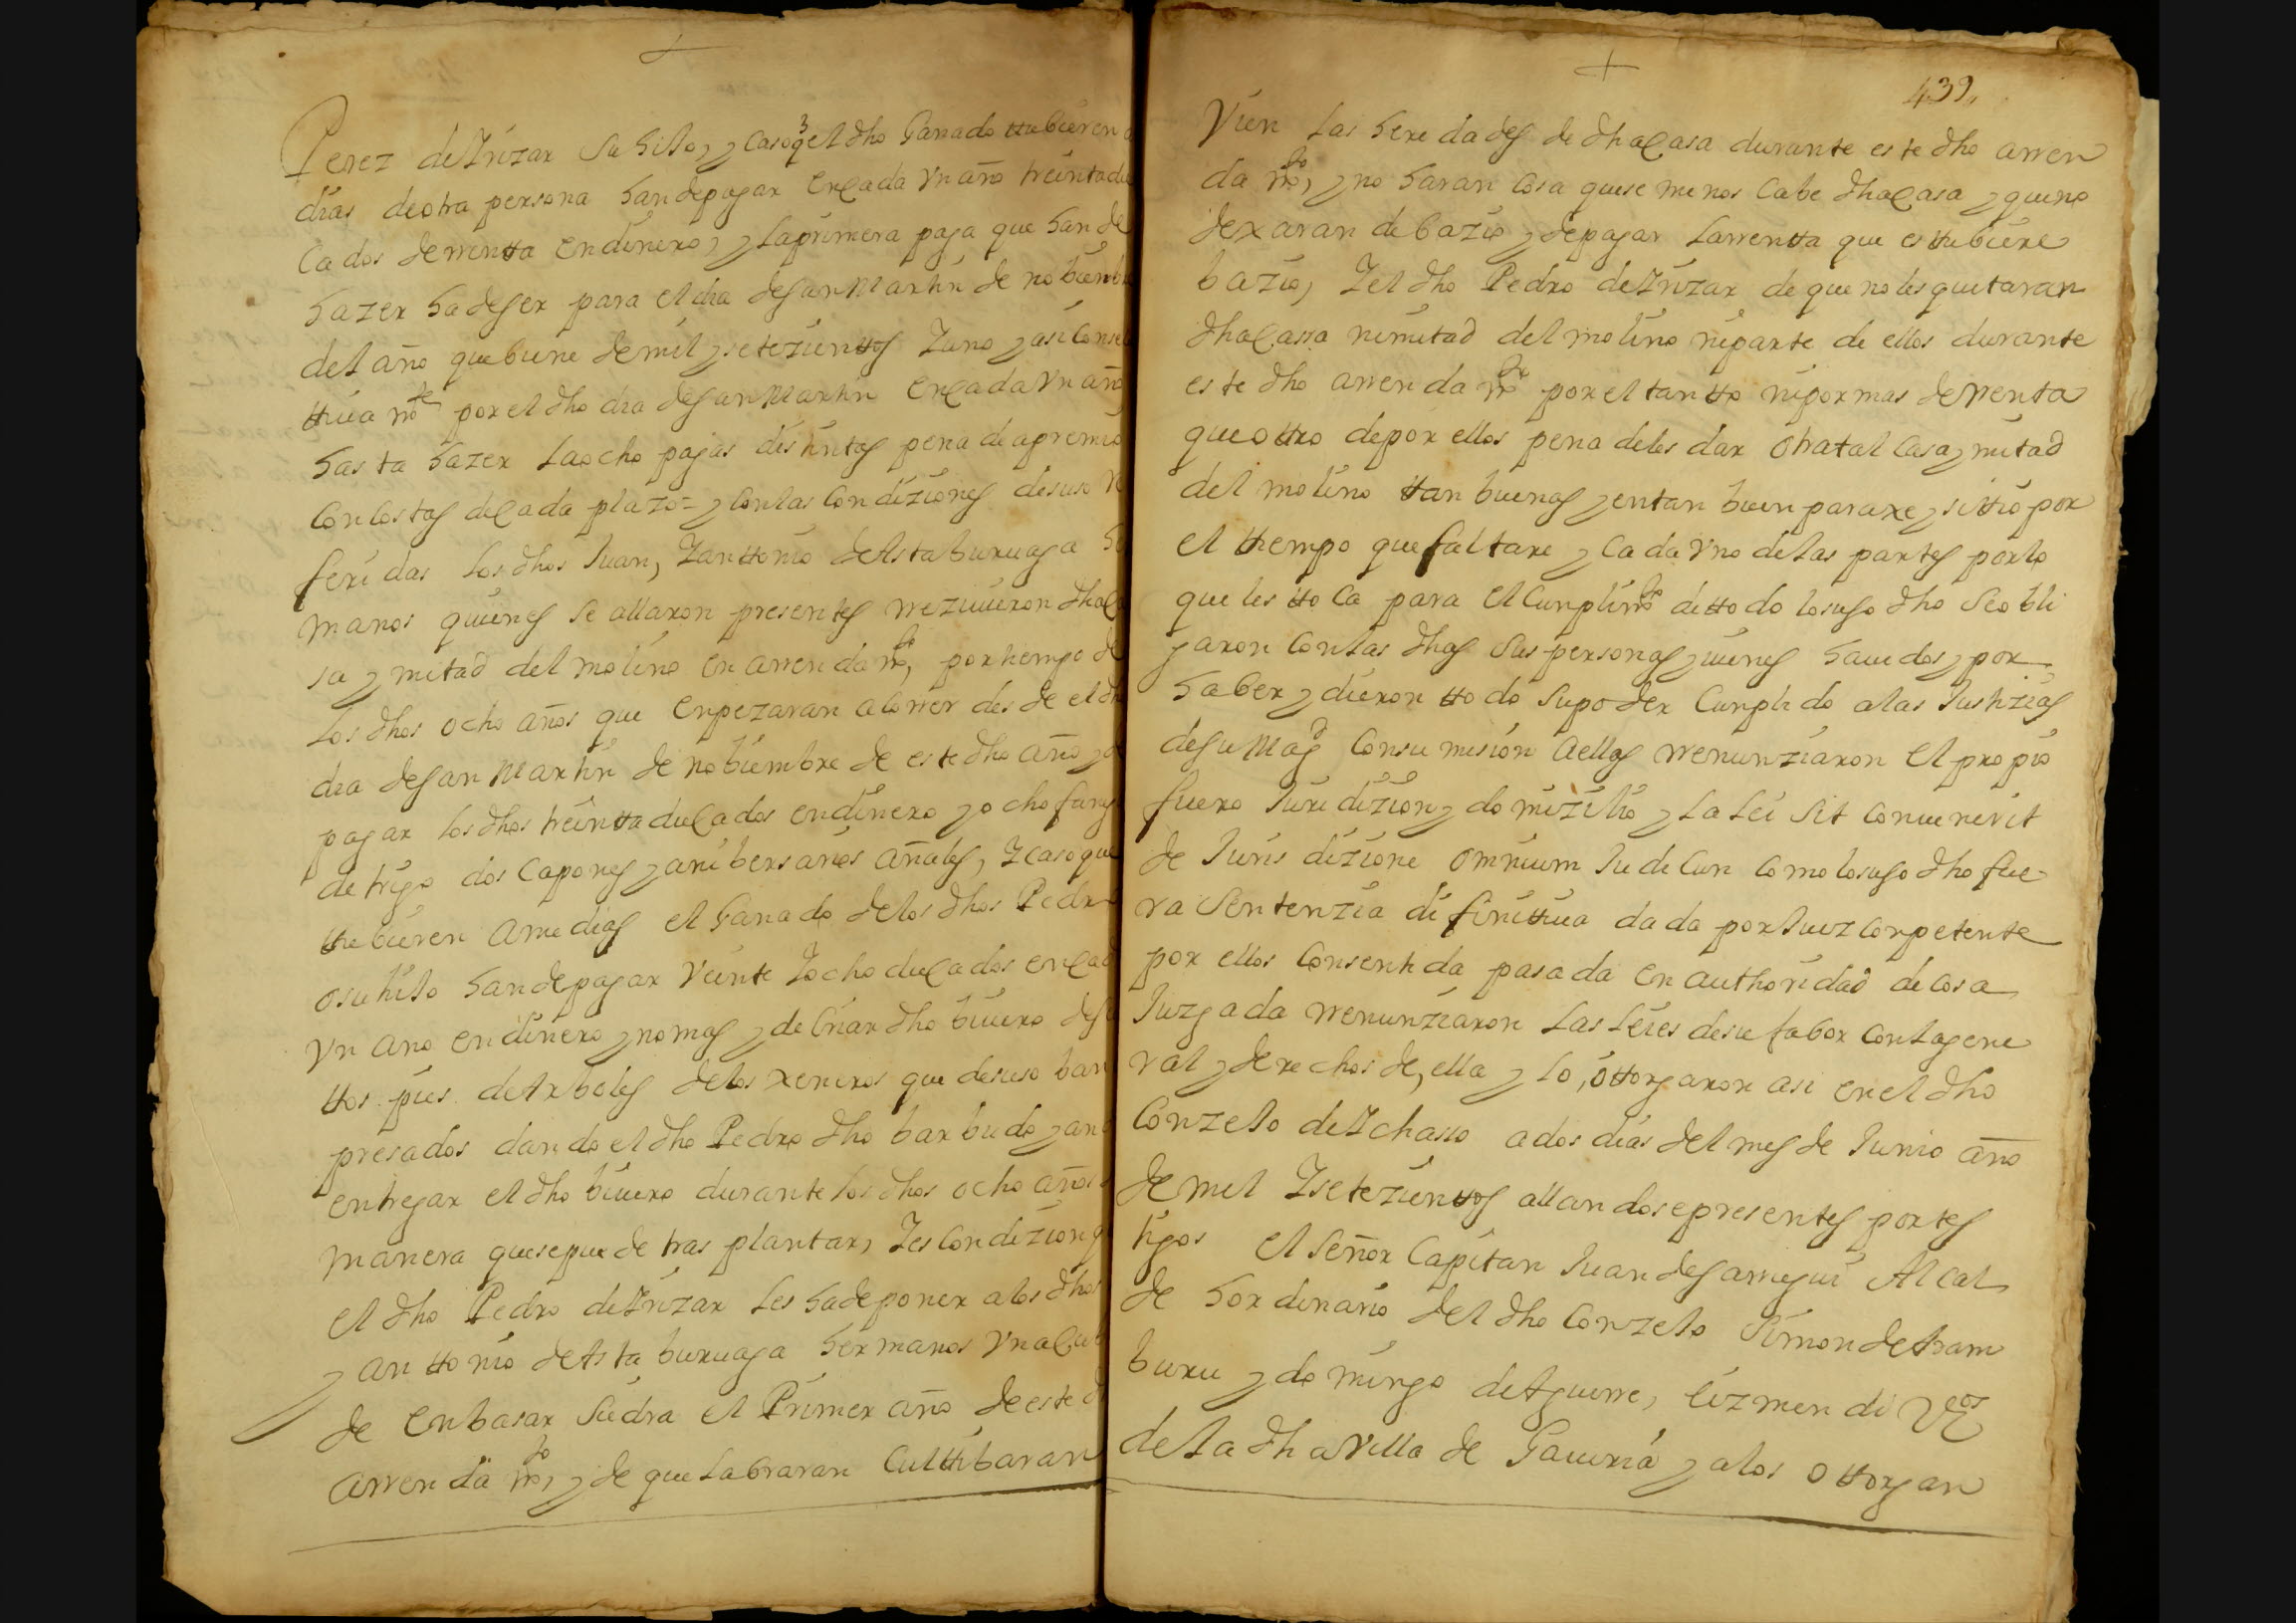 Perez de Yrizar su hijo, y caso q el dho Ganado ttubieren a
dias de otra persona han de pagar en cada vn año treinta du
cados de rrentta en dinero, y la primera paga que han de
hazer ha de ser para el dia de san Martin de nobiembre
del año que biene de mil y setezientos Y uno y asi conse
ttiua mte por el dho dia de san Martin en cada vn año
hasta hazer la ocho pagas distintas pena de apremio
con costas de cada plazo = y con las condiziones de suso re
feridas los dhos Juan, Y Anttonio de Astaburuaga her
manos quienes se allaron presentes rreziuieron dha ca
sa y mitad del molino en arrenda mto, por tiempo de
los dhos ocho años que enpezaran a correr desde el dho
dia de san Martin de nobiembre de este dho año y de
pagar los dhos treintta ducados en dinero y ocho faneg
de trigo dos capones y anibersarios añales, Y caso que
ttubieren a medias el Ganado de los dhos Pedro
o su hijo han de pagar veinte Y ocho ducados en cada
vn ano en dinero y no mas y de criar dho biuero de
ttos pies de Arboles de los xeneros que de suso ban
presados dando el dho Pedro dho barbudo y an de
entregar el dho biuero durante los dhos ocho años
manera que se puede tras plantar, Y es condizion q
el dho Pedro de Yrizar les ha de poner a los dhos
y anttonio de Astaburuaga hermanos vna cuba
de enbasar sidra el Primer año de este d
arrenda mto, y de que labraran culttibaran
439
Vien las heredades de dha casa durante este dho arren
da mto, y no haran cosa que se menos cabe dha casa y que no
dexaran de bazio y de pagar la rrentta que esttubiere
bazio, Y el dho Pedro de Yrizar de que no les quitaran
dha cassa ni mitad del molino ni parte de ellos durante
este dho arrenda mto por el tantto ni por mas de rrenta
que ottro de por ellos pena de les dar otra tal casa y mitad
del molino ttan buenas y en tan buen paraxe y sittio por
el ttiempo que faltare y cada vno de las partes por lo
que les ttoca para el cunplimto de ttodo lo suso dho se obli
garon con las dhas sus personas y uienes hauidos y por
haber y dieron ttodo su poder cunplido a las Justizias
de su Magd con su mision a ellas rrenunziaron el propio
fuero Juridizion y domizilio y la lei sit conuenerit
de Jurisdizione omnium Judicun como lo suso dho fue
ra sentenzia difinittiua dada por Juez conpetente
por ellos consentida pasada en authoridad de cosa
Juzgada rrenunziaron las leies de su fabor con la gene
ral y derechos de, ella y lo, ottorgaron asi en el dho
Conzejo de Ychasso a dos dias del mes de Junio año
de mil Y setezientos allandose presentes por tes
tigos el señor Capitan Juan de Sarregui Alcal
de hordinario del dho Conzejo Simon de Aram
buru y domingo de Aguirre, lizmendi Vezos
de la dha villa de Gauiria y a los ottorgan